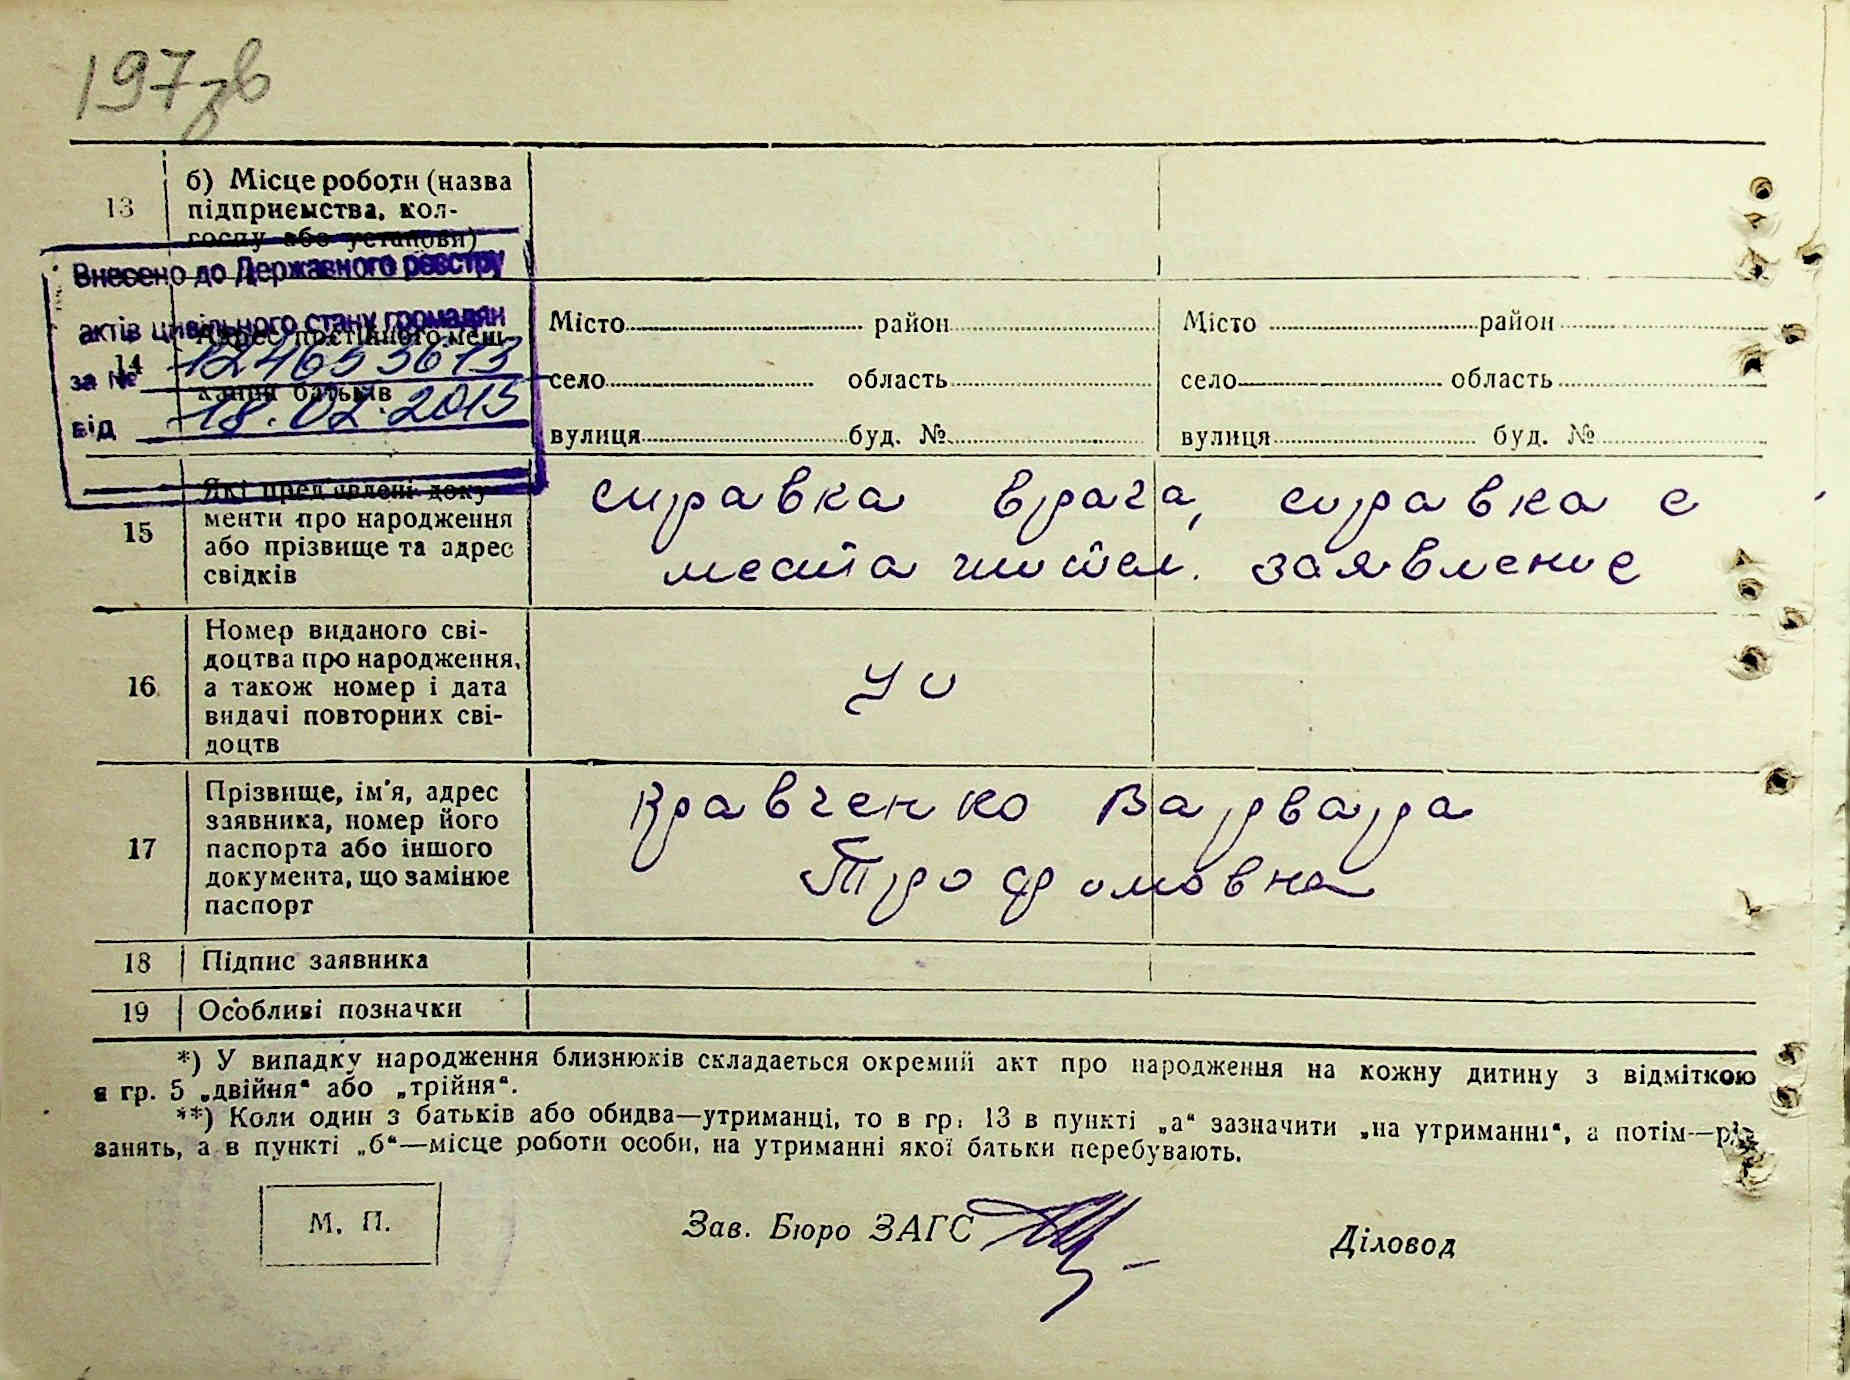 197 зв
13
б) Місце роботи (назва
підприємства, кол-
госпу або установи)
Внесено до Державного реєстру
актів цивільного стану громадян
за №
від 18.02.2015
14
Адрес постійного меш-
кання батьків
Місто район
село область
вулиця буд. №
Місто район
село область
вулиця буд. №
15
Які пред'явлені доку-
менти про народження
або прізвище та адрес
свідків
справка врача, справка с
места жител. заявление
16
Номер виданого сві-
доцтва про народження,
а також номер і дата
видачі повторних сві-
доцтв
17
Прізвище, ім'я, адрес
заявника, номер його
паспорта або іншого
документа, що замінює
паспорт
Кравченко Варвара
Трофимовна
18 Підпис заявника
19 Особливі позначки
*) У випадку народження близнюків складається окремий акт про народження на кожну дитину з відміткою
в гр. 5 „двійня“ або „трійня“.
**) Коли один з батьків або обидва—утриманці, то в гр. 13 в пункті „а“ зазначити „на утриманні“, а потім—рід
занять, а в пункті „б“—місце роботи особи, на утриманні якої батьки перебувають.
М. П.
Зав. Бюро ЗАГС
Діловод